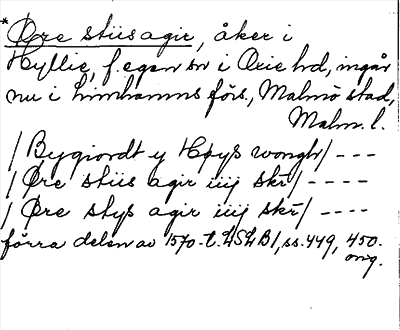 *Øre stiis agir, åker i
Hyllie, f. egen sn i Oxie hd, ingår
nu i Limhamns förs., Malmö stad,
Malm. l.
/ Bygiordt y Høys wongh / ---
/ Øre stiis agir iiij skr̄ / ----
/ Øre stys agir iiij skr̄ / ----
förra delen av 1570-t. LSLB1, ss. 449, 450.
orig.